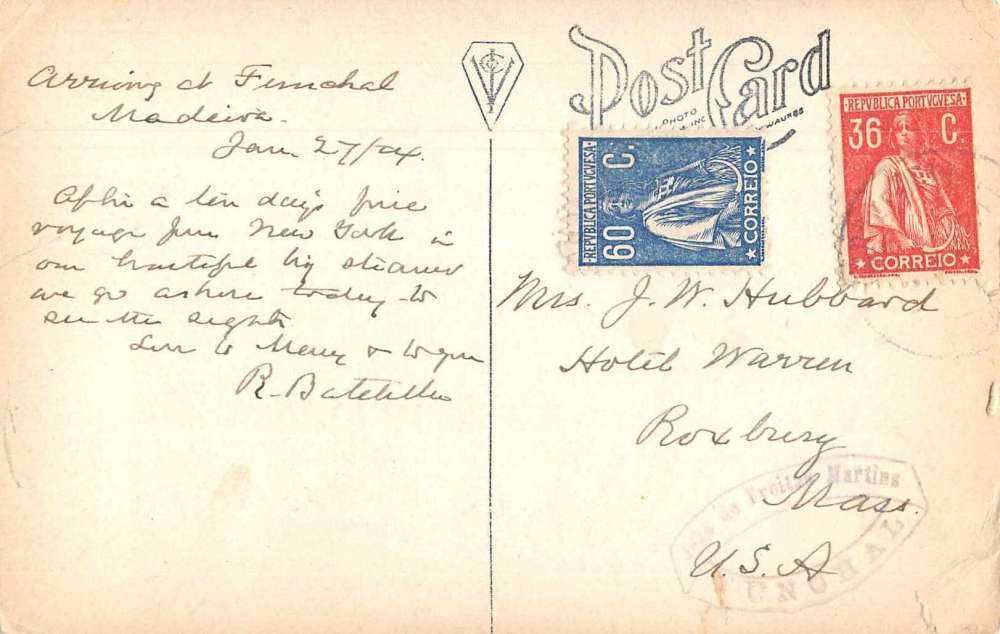 Arriving at Funchal
Madeira.
Jan. 27/24.
After a ten days fine
voyage from New York in
our beautiful big steamer
we go ashore today to
see the sights
Love to Mery & to you
R.
Post Card
PHOTO
INC
REPVBLICA PORTVGVESA
60 C.
CORREIO
REPVBLICA PORTVGVESA
36 C.
CORREIO
Mrs. J. W. Hubbard
Hotel Warren
Roxbury
Mass.
U.S.A
de Freitas Martins
UNCHAL